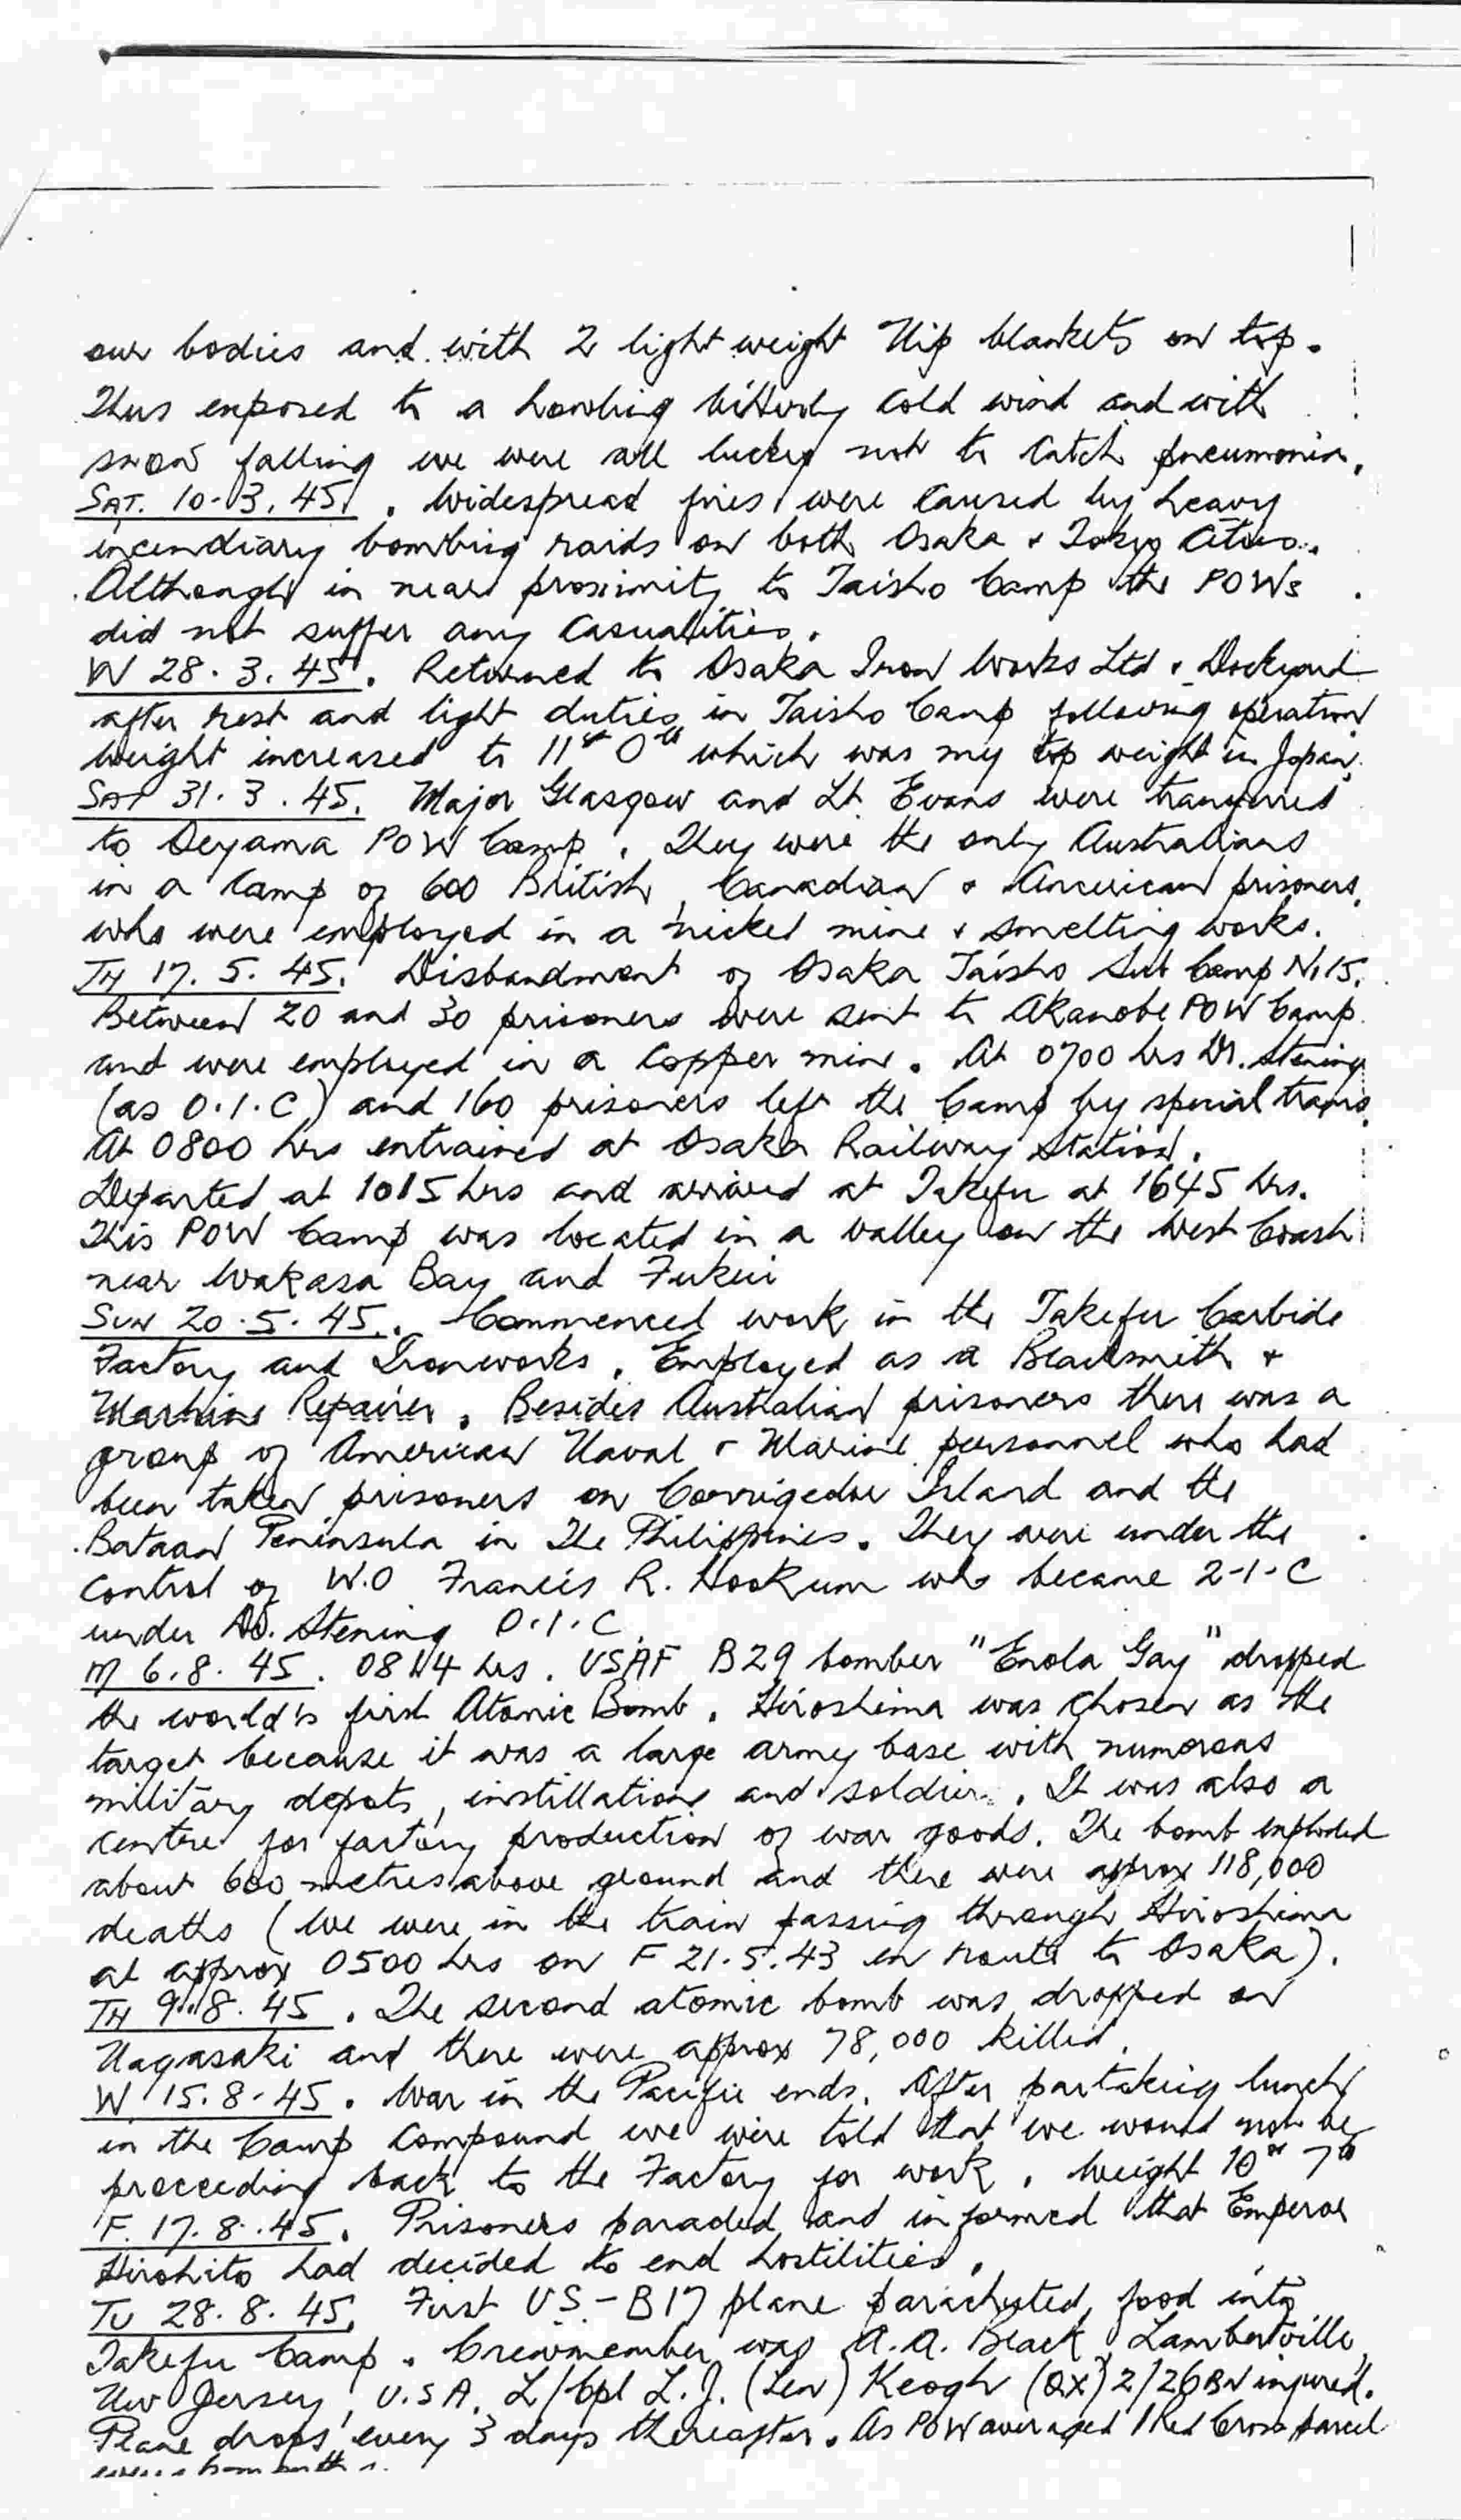 our bodies and with 2 light weight Nip blankets on top.
Thus exposed to a howling bitterly cold wind and with
snow falling we were all lucky not to catch pneumonia.
SAT. 10.3.45. Widespread fires were caused by heavy
incendiary bombing raids on both Osaka & Tokyo Cities.
Although in near proximity to Taisho Camp the POWs
did not suffer any Casualities.
W 28.3.45. Returned to Osaka Iron Works Ltd & Dockyard
after rest and light duties in Taisho Camp following operation
Weight increased to 11st 0lb which was my top weight in Japan.
SAT 31.3.45. Major Glasgow and Lt. Evans were transferred
to Oeyama POW Camp. They were the only Australians
in a Camp of 600 British, Canadian & American prisoners,
who were employed in a nickel mine & smelting works.
TH 17.5.45. Disbandment of Osaka Taisho Sub Camp No 15.
Between 20 and 30 prisoners were sent to Akanobe POW Camp
and were employed in a Copper mine. At 0700 hrs Dr. Stening
(as O.I.C) and 160 prisoners left the Camp by special trams.
At 0800 hrs entrained at Osaka Railway Station.
Departed at 1015 hrs and arrived at Takefu at 1645 hrs.
This POW Camp was located in a valley on the West Coast
near Wakasa Bay and Fukui
SUN 20.5.45. Commenced work in the Takefu Carbide
Factory and Ironworks. Employed as a Blacksmith &
Machine Repairer. Besides Australian prisoners there was a
group of American Naval & Marine personnel who had
been taken prisoners on Corrigedor Island and the
Bataan Peninsula in The Philippines. They were under the
Control of W.O Francis R. Hookum who became 2-I-C
under Dr. Stening O.I.C.
M 6.8.45. 0814 hrs. USAF B29 bomber "Enola Gay" dropped
the world's first Atomic Bomb. Hiroshima was chosen as the
target because it was a large army base with numerous
military depots, instillations and soldiers. It was also a
centre for factory production of war goods. The bomb exploded
about 600 metres above ground and there were approx 118,000
deaths (We were in the train passing through Hiroshima
at approx 0500 hrs on F 21.5.43 en route to Osaka).
TH 9.8.45. The second atomic bomb was dropped on
Nagasaki and there were approx 78,000 killed.
W 15.8.45. War in the Pacific ends. After partaking lunch
in the Camp Compound we were told that we would not be
proceeding back to the Factory for work. Weight 10st 7lb
F. 17.8.45. Prisoners paraded and informed that Emperor
Hirohito had decided to end hostilities.
TU 28.8.45. First US-B17 plane parachuted food into
Takefu Camp. Crewmember was A.A. Black, Lambertville,
New Jersey, U.S.A. L/Cpl L.J. (Len) Keogh (QX) 2/26 BN injured.
Plane drops every 3 days thereafter. As POW averaged 1 Red Cross parcel